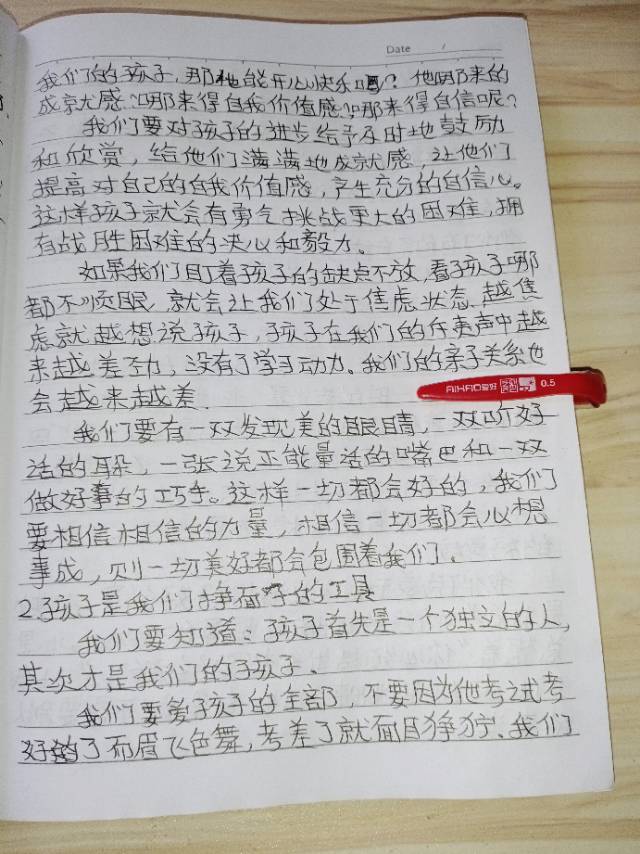 Date /
我们的孩子,那他能开心快乐吗?他哪来的
成就感?哪来得自我价值感?哪来得自信呢?
我们要对孩子的进步给予及时地鼓励
和欣赏,给他们满满地成就感,让他们
提高对自己的自我价值感,产生充分的自信心。
这样孩子就会有勇气挑战更大的困难,拥
有战胜困难的决心和毅力。
如果我们盯着孩子的缺点不放,看孩子哪
都不顺眼,就会让我们处于焦虑状态,越焦
虑就越想说孩子,孩子在我们的斥责声中越
来越差劲,没有了学习动力。我们的亲子关系也
会越来越差.
AIHAO爱好 0.5
我们要有一双发现美的眼睛,一双听好
话的耳朵,一张说正能量话的嘴巴和一双
做好事的巧手。这样一切都会好的,我们
要相信相信的力量,相信一切都会心想
事成,则一切美好都会包围着我们。
2.孩子是我们挣面子的工具
我们要知道:孩子首先是一个独立的人,
其次才是我们的孩子、
我们要爱孩子的全部,不要因为他考试考
好了而眉飞色舞,考差了就面目狰狞、我们